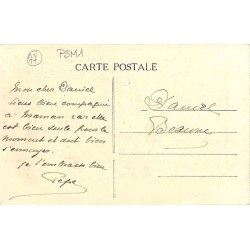 77
PSM1
CARTE POSTALE
Mon cher Daniel
tiens bien compagnie
à Maman car elle
est bien seule pour le
moment et doit bien
s'ennuyer.
je t'embrasse bien
Papa
Daniel
Beaune